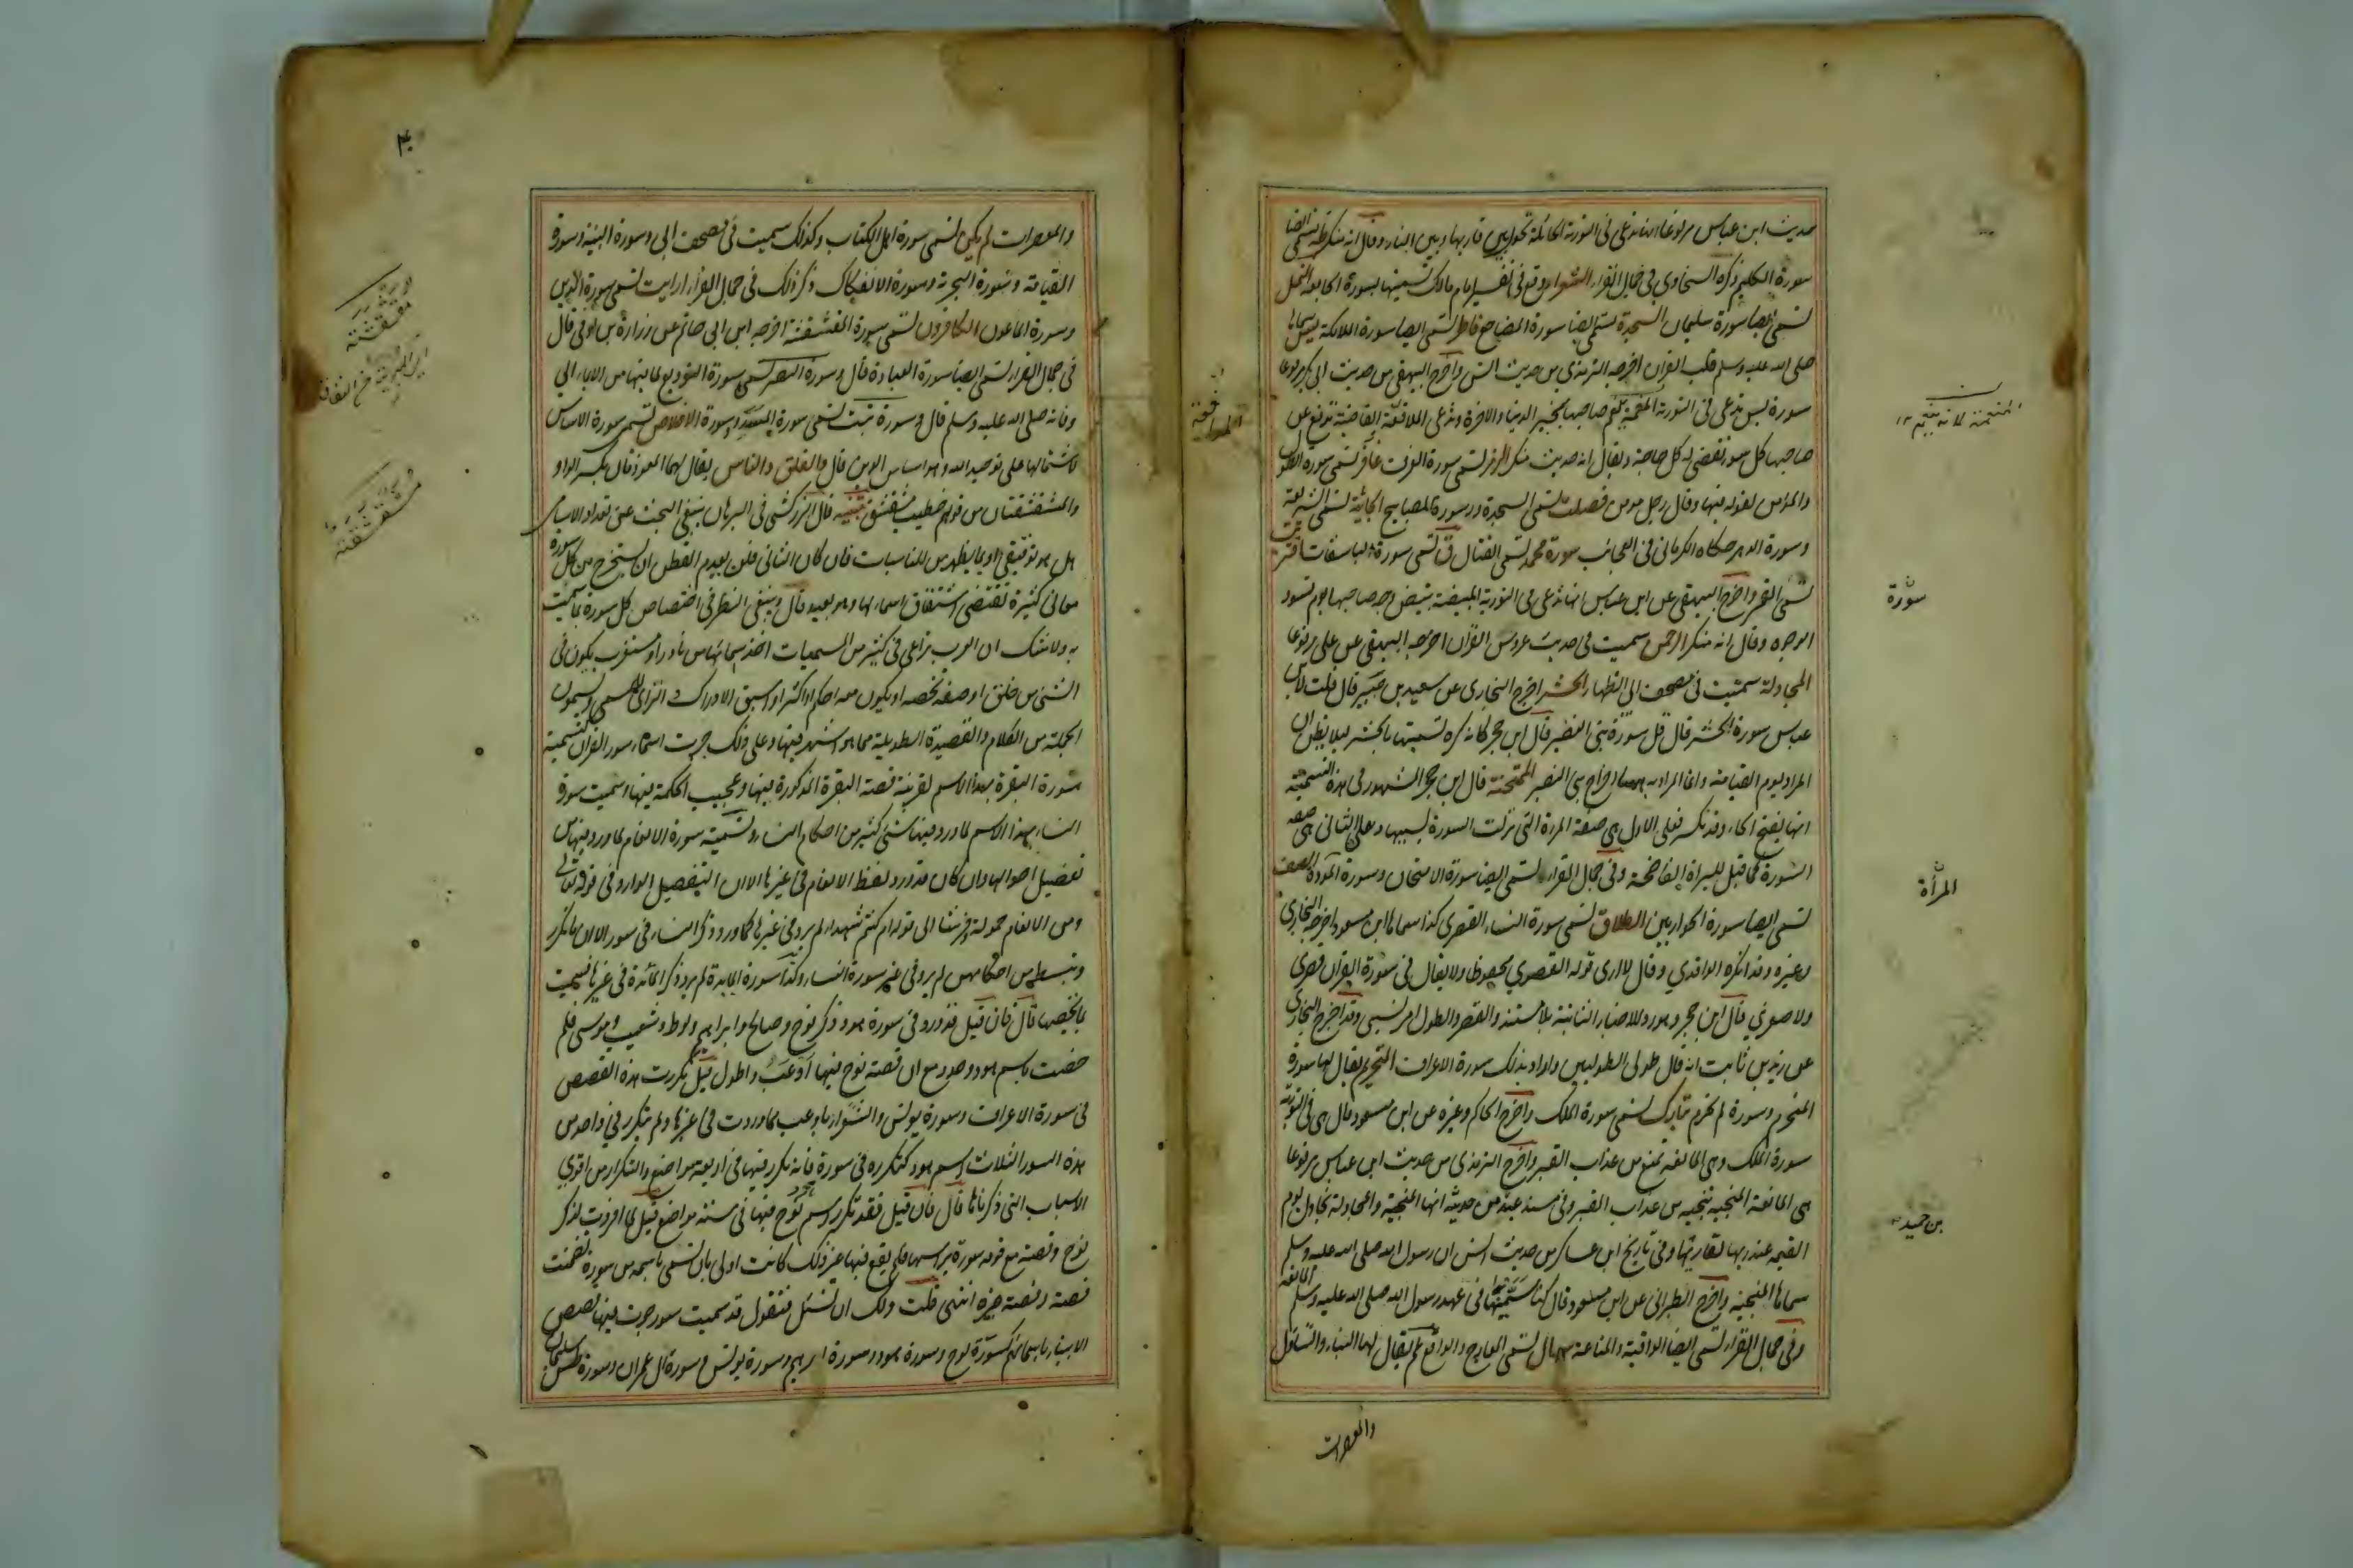 حديث ابن عباس مرفوعا انها تدعى فى التورية الحائلة تحول بين قاريها وبين النار وقال انه منكر طه تسمى ايضا
سورة الكليم ذكره السخاوى فى جمال القراء الشعراء وقع فى تفسير امام مالك تسميتها بسورة الجامعة النمل
تسمى ايضا سورة سليمان السجدة تسمى ايضا سورة المضاجع فاطر تسمى ايضا سورة الملائكة يس سماها
صلى الله عليه وسلم قلب القران اخرجه الترمذى من حديث انس واخرج البيهقى من حديث ابى بكر مرفوعا
سورة يس تدعى فى التورية المعمة تعم صاحبها بخير الدنيا والاخرة وتدعى المدافعة القاضية تدفع عن
صاحبها كل سوء وتقضى له كل حاجة وقال انه حديث منكر الزمر تسمى سورة الغرف غافر تسمى سورة الطول
والمؤمن لقوله فيها وقال رجل مومن فصلت تسمى السجدة وسورة المصابيح الجاثية تسمى الشريعة
وسورة الدهر حكاه الكرمانى فى العجائب سورة محمد تسمى القتال ق تسمى سورة الباسقات اقتربت
تسمى القمر واخرج البيهقى عن ابن عباس انها تدعى فى التورية المبيضة تبيض وجه صاحبها يوم تسود
الوجوه وقال انه منكر الرحمن سميت فى حديث عروس القرآن اخرجه البيهقى عن على مرفوعا
المجادلة سميت فى مصحف ابى الظهار الحشر اخرج البخارى عن سعيد بن جبير قال قلت لابن
عباس سورة الحشر قال قل سورة بنى النضير قال ابن حجر كانه كره تسميتها بالحشر ليلا يظن ان
المراد يوم القيامة وانما المراد به ههنا اخراج بنى النضير الممتحنة قال ابن حجر المشهور فى هذه التسمية
انها بفتح الحاء وقد تكسر فعلى الاول هى صفة المرة التى نزلت السورة بسببها وعلى الثانى هى صفة
السورة كما قيل لبراة الفاضحة وفى جمال القراء تسمى ايضا سورة الامتحان وسورة المودة الصف
تسمى ايضا سورة الحواريين الطلاق تسمى سورة النساء القصرى كذا سماها ابن مسعود اخرجه البخارى
وغيره وقد انكره الداودي وقال لا ارى قوله القصري محفوظا ولا يقال فى سورة القران قصرى
ولا صغري قال ابن حجر وهو رد للاخبار الثابتة بلا مستند والقصر والطول امر نسبى وقد اخرج البخارى
عن زيد بن ثابت انه قال طولى الطوليين واراد بذلك سورة الاعراف التحريم يقال لها سورة
المتحرم وسورة لم تحرم تبارك تسمى سورة الملك واخرج الحاكم وغيره عن ابن مسعود قال هى فى التورية
سورة الملك وهى المانعة تمنع من عذاب القبر واخرج الترمذى من حديث ابن عباس مرفوعا
هى المانعة المنجية تنجيه من عذاب القبر وفى مسند عبد من حديثه انها المنجية والمجادلة تجادل يوم
القيمة عند ربها لقاريها وفى تاريخ ابن عساكر من حديث انس ان رسول الله صلى الله عليه وسلم
سماها المنجية واخرج الطبرانى عن ابن مسعود قال كنا نسميها فى عهد رسول الله صلى الله عليه وسلم المانعة
وفى جمال القراء تسمى ايضا الواقية والمناعة سال تسمى المعارج والواقع عم يقال لها النباء والتساؤل
والمعصرات
سورة
المرأة
بن حميد
والمعصرات لم يكن تسمى سورة اهل الكتاب وكذلك سميت فى مصحف ابى وسورة البينة وسورة
القيامة وسورة البرية وسورة الانفكاك ذكر ذلك فى جمال القراء ارايت تسمى سورة الدين
وسورة الماعون الكافرون تسمى سورة المقشقشة اخرجه ابن ابى حاتم عن زرارة بن اوفى قال
فى جمال القراء تسمى ايضا سورة العبادة قال وسورة النصر تسمى سورة التوديع لما فيها من الايماء الى
وفاته صلى الله عليه وسلم قال وسورة تبت تسمى سورة المسد وسورة الاخلاص تسمى سورة الاساس
لاشتمالها على توحيد الله وهو اساس الدين قال والفلق والناس يقال لهما المعوذتان بكسر الواو
والمشقشقتان من قولهم خطيب مشقشق تنبيه قال الزركشى فى البرهان ينبغى البحث عن تعداد الاسامى
هل هو توقيفى او بما يظهر من المناسبات فان كان الثانى فلن يعدم الفطن ان يستخرج من كل سورة
معانى كثيرة تقتضى اشتقاق اسماء لها وهو بعيد قال وينبغى النظر فى اختصاص كل سورة بما سميت
به ولا شك ان العرب تراعى فى كثير من المسميات اخذ اسمائها من نادر او مستغرب يكون فى
الشئ من خلق او صفة تخصه او يكون معه احكم او اكثر او اسبق الادراك الرائى للمسمى ويسمون
الجملة من الكلام والقصيدة الطويلة بما هو اشهر فيها وعلى ذلك جرت اسماء سور القرآن كتسمية
سورة البقرة بهذا الاسم لقرينة قصة البقرة المذكورة فيها وعجيب الحكمة فيها وسميت سورة
النساء بهذا الاسم لما ورد فيها شئ كثير من احكام النساء وتسمية سورة الانعام لما ورد فيها من
تفصيل احوالها وان كان قد ورد لفظ الانعام فى غيرها الا ان التفصيل الوارد فى قوله تعالى
ومن الانعام حمولة وفرشا الى قوله ام كنتم شهداء لم يرد فى غيرها كما ورد ذكر النساء فى سور الا ان ما تكرر
وبسط من احكامهن لم يرد فى غير سورة النساء وكذا سورة المايدة لم يرد ذكر المائدة فى غيرها فسميت
بما يخصها قال فان قيل قد ورد فى سورة هود ذكر نوح وصالح وابراهيم ولوط وشعيب وموسى فلم
خصت باسم هود وحده مع ان قصة نوح فيها اوعب واطول قيل تكررت هذه القصص
فى سورة الاعراف وسورة يونس والشعراء باوعب مما وردت فى غيرها ولم يتكرر فى واحد من
هذه السور الثلاث اسم هود كتكرره فى سورة فانه تكرر فيها فى اربعة مواضع والتكرار من اقوى
الاسباب التى ذكرناها قال فان قيل فقد تكرر اسم نوح فيها فى ستة مواضع قيل لما افردت لذكر
نوح وقصته مع قومه سورة براسها فلم يقع فيها غير ذلك كانت اولى بان تسمى باسمه من سورة تضمنت
قصته وقصة غيره انتهى قلت ولك ان تسئل فتقول قد سميت سور جرت فيها قصص
الانبياء باسمائهم كسورة نوح وسورة هود وسورة ابراهيم وسورة يونس وسورة آل عمران وسورة طس سليمان